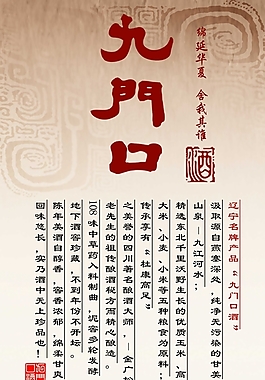 九門口
绵延华夏 舍我其谁
酒
辽宁名牌产品“九门口酒”
汲取源自燕塞深处，纯净无污染的甘美
山泉——九江河水；
精选东北千里沃野生长的优质玉米、高
大米、小麦、小米等五种粮食为原料；
传承享有“杜康高足”
之美誉的四川著名酿酒大师——金广松
老先生的祖传酿酒秘方而精心酿造。
108味中草药入料制曲，泥窖多轮发酵
地下酒窖珍藏，不到年份不开坛。
陈年美酒自醇香，窖香浓郁，绵柔甘爽
回味悠长，实乃酒中无上珍品也！